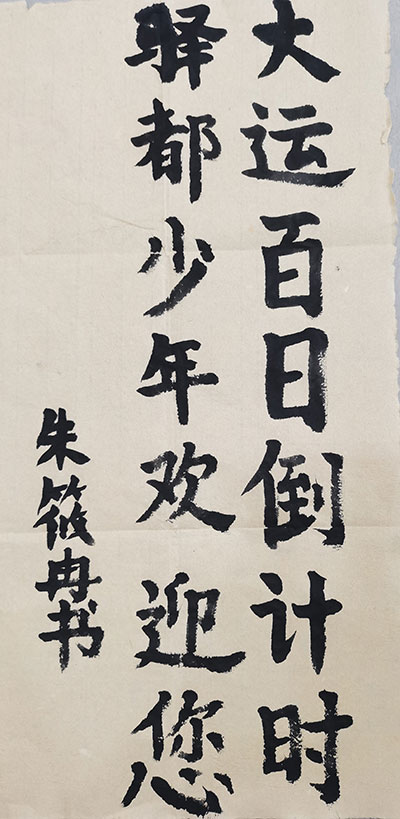 大运百日倒计时
驿都少年欢迎您
朱筱冉书